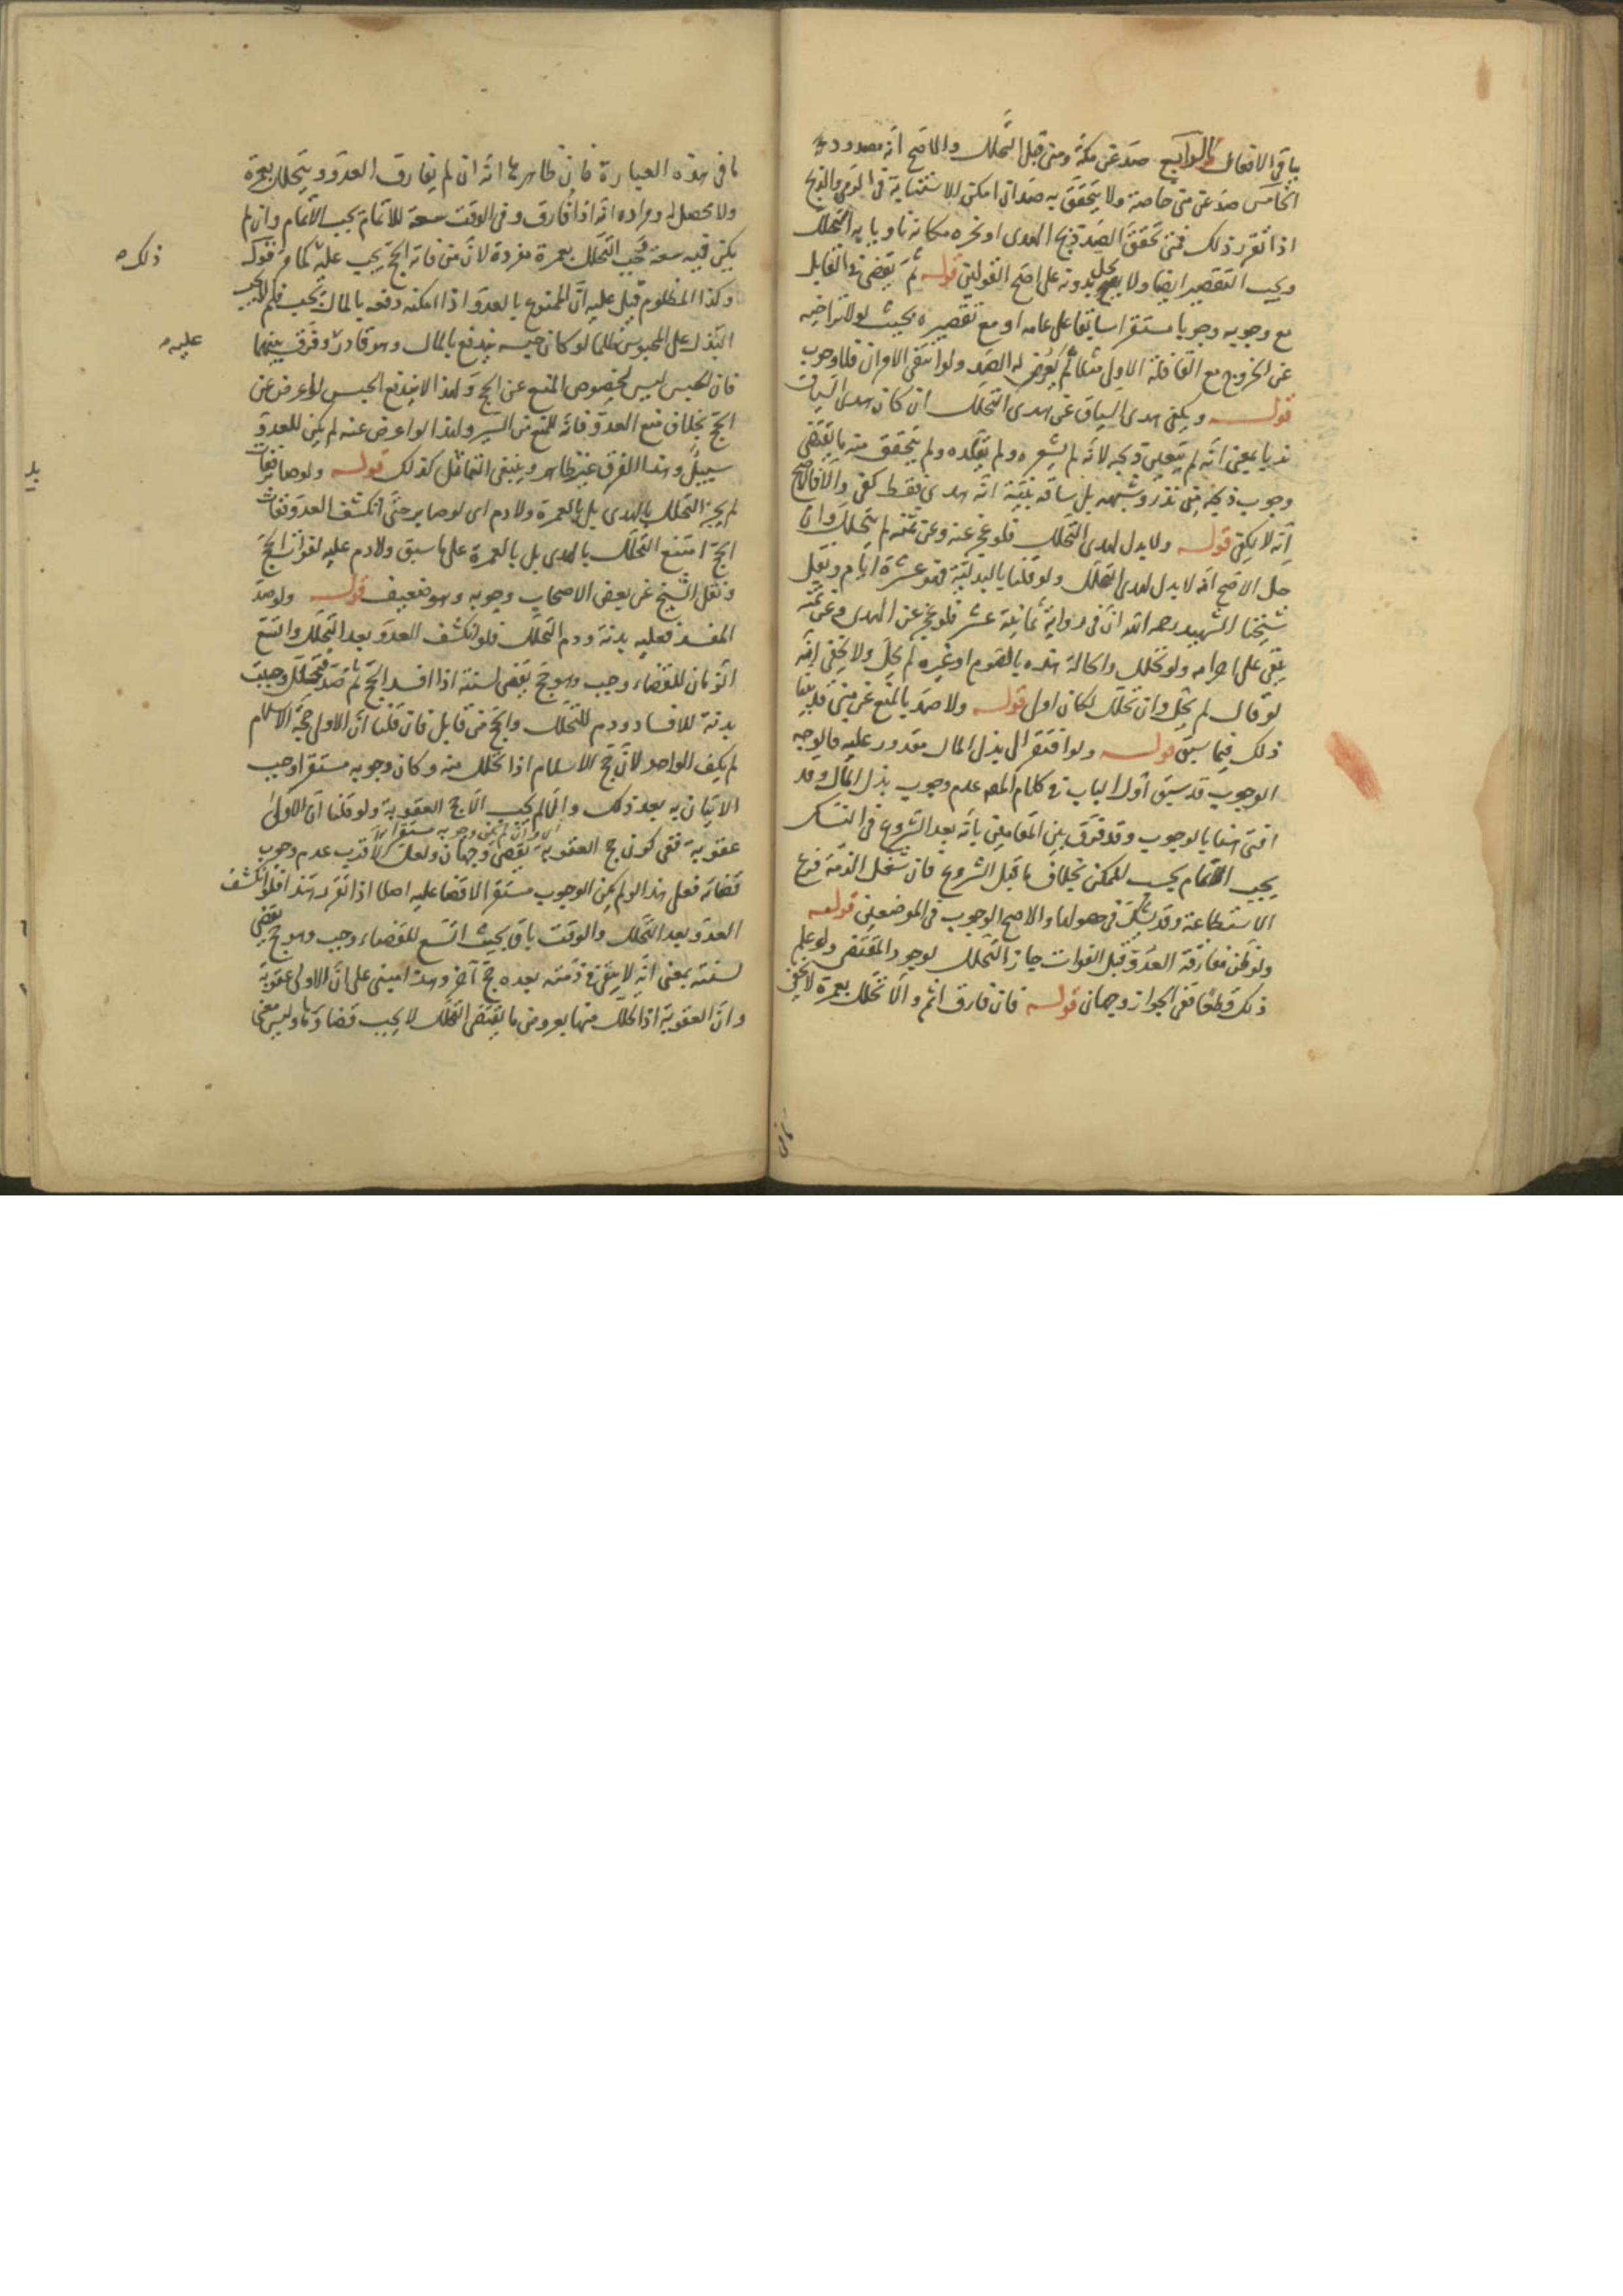 باقي الافعال الرابع صد عن مكة ومنى قبل التحلل والاصح انه مصدود
الخامس صد عن منى خاصة ولا يتحقق به صد ان امكن الاستنابة في الرمي والذبح
اذا تقرر ذلك فمتى تحقق الصد ذبح الهدى او نحره مكانه ناويا به التحلل
ويجب التقصير ايضا ولا يحل بدونه على اصح القولين قوله ثم يقضى في القابل
مع وجوبه وجوبا مستقرا سابقا على عامه او مع تقصيره بحيث لولا تراخيه
عن الخروج مع القافلة الاولى مثلا لم يعرض له الصد ولو انتفى الامران فلا وجوب
قوله ويكفى هدى السياق عن هدى التحلل ان كان هدى السياق
ندبا بمعنى انه لم يتعين ذبحه لانه لم يشعره ولم يقلده ولم يتحقق منه ما يقتضى
وجوب ذبحه من نذر وشبهه بل ساقه بنية انه هدى فقط كفى والا فالاصح
انه لا يكفى قوله ولا بدل لهدى التحلل فلو عجز عنه وعن ثمنه لم يتحلل وان
حل الاصح انه لا بدل لهدى التحلل ولو قلنا بالبدلية فهو عشرة ايام ونقل
شيخنا الشهيد رحمه الله ان في رواية ثمانية عشر فلو عجز عن الهدى وعن ثمنه
بقى على احرامه ولو تحلل والحالة هذه بالصوم او غيره لم يحل ولا يخفى انه
لو قال لم يحل وان تحلل لكان اولى قوله ولا صد بالمنع عن منى قد بينا
ذلك فيما سبق قوله ولو افتقر الى بذل المال مقدور عليه فالوجه
الوجوب قد سبق اول الباب في كلام المصه عدم وجوب بذل المال وقد
افتى هنا بالوجوب وقد فرق بين المقامين بانه بعد الشروع في النسك
يجب الاتمام بحسب الممكن بخلاف ما قبل الشروع فان شغل الذمة فرع
الاستطاعة وقد شك في حصولها والاصح الوجوب في الموضعين قوله
ولو ظن مفارقة العدو قبل الفوات جاز التحلل لوجود المقتضى ولو علم
ذلك قطعا ففى الجواز وجهان قوله فان فارق اتم والا تحلل بعمرة لا يخفى
ما في هذه العبارة فان ظاهرها انه ان لم يفارق العدو يتحلل بعمرة
ولا محصل له ومراده انه اذا فارق وفى الوقت سعة للاتمام يجب الاتمام وان لم
يكن فيه سعة وجب التحلل بعمرة مفردة لان من فاته الحج يجب عليه كما مر قوله
ذلك
وكذا المظلوم قيل عليه ان الممنوع بالعدو اذا امكنه دفعه بالمال يجب فلم لا يجب
البذل على المحبوس ظلما لو كان حبسه يندفع بالمال وهو قادر وفرق بينهما
عليه
فان الحبس ليس لخصوص المنع عن الحج ولهذا لا يندفع الحبس لو اعرض عن
الحج بخلاف منع العدو فانه للمنع من السير ولهذا لو اعرض عنه لم يكن للعدو
سبيل وهذا الفرق غير ظاهر وينبغى التماثل كذلك قوله ولو صابر ففات
لم يجز التحلل بالهدى بل بالعمرة ولا دم اى لو صابر حتى انكشف العدو ففات
الحج امتنع التحلل بالهدى بل بالعمرة على ما سبق ولا دم عليه لفوات الحج
ونقل الشيخ عن بعض الاصحاب وجوبه وهو ضعيف قوله ولو صد
المفسد فعليه بدنة ودم التحلل فلو انكشف العدو بعد التحلل واتسع
الزمان للقضاء وجب وهو حج يقضى لسنته اذا افسد الحج ثم صد فتحلل وجبت
بدنة للافساد ودم للتحلل والحج من قابل فان قلنا ان الاولى حجة الاسلام
لم يكف الواحد لان حج الاسلام اذا تحلل منه وكان وجوبه مستقرا وجب
الاتيان به بعد ذلك والا لم يجب الا حج العقوبة ولو قلنا ان الاولى
عقوبة ففى كون حج العقوبة يقضى وجهان ولعل الاقرب عدم وجوب
قضائه فعلى هذا لو لم يكن الوجوب مستقرا لا قضا عليه اصلا اذا تقرر هذا فلو انكشف
العدو بعد التحلل والوقت باق بحيث اتسع للقضاء وجب وهو حج يقضى
لسنته بمعنى انه لا يبقى في ذمته بعده حج آخر وهذا مبنى على ان الاولى عقوبة
وان العقوبة اذا تحلل منها بعروض ما يقتضى التحلل لا يجب قضاؤها وليس معنى